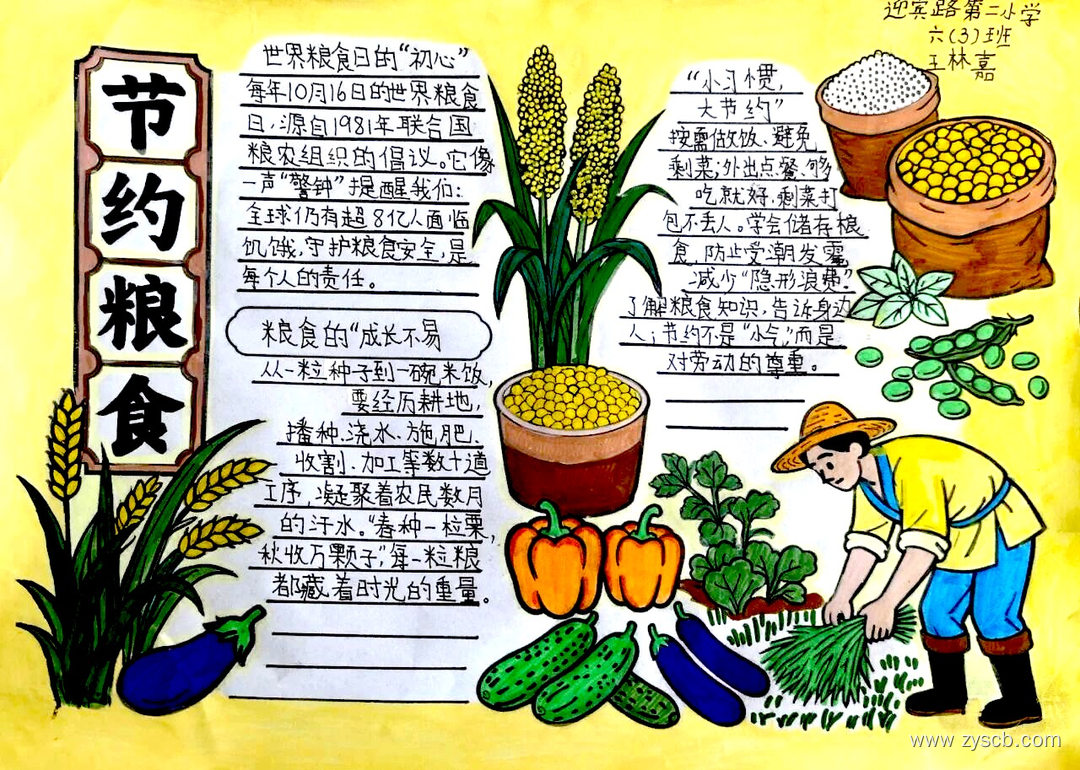 迎宾路第二小学
六(3)班
王林嘉
节约粮食
世界粮食日的“初心”
每年10月16日的世界粮食
日,源自1981年联合国
粮农组织的倡议。它像
一声“警钟”提醒我们:
全球仍有超8亿人面临
饥饿,守护粮食安全,是
每个人的责任。
粮食的“成长不易
从一粒种子到一碗米饭,
要经历耕地,
播种、浇水、施肥、
收割、加工等数十道
工序,凝聚着农民数月
的汗水。“春种一粒粟,
秋收万颗子”,每一粒粮
都藏着时光的重量。
“小习惯,
大节约”
按需做饭、避免
剩菜;外出点餐,够
吃就好,剩菜打
包不丢人。学会储存粮
食,防止受潮发霉,
减少“隐形浪费”。
了解粮食知识,告诉身边
人;节约不是“小气”,而是
对劳动的尊重。
www.zyscb.com